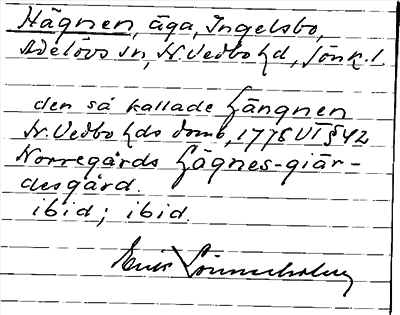 Hägnen, äga, Ingelsbo,
Adelövs sn, N. Vedbo hd, Jönk. l.
den så kallade Hängnen
N. Vedbo hds domb, 1778 VT § 42
Norregårds Hägnes-giär-
desgård.
ibid; ibid.
Erik